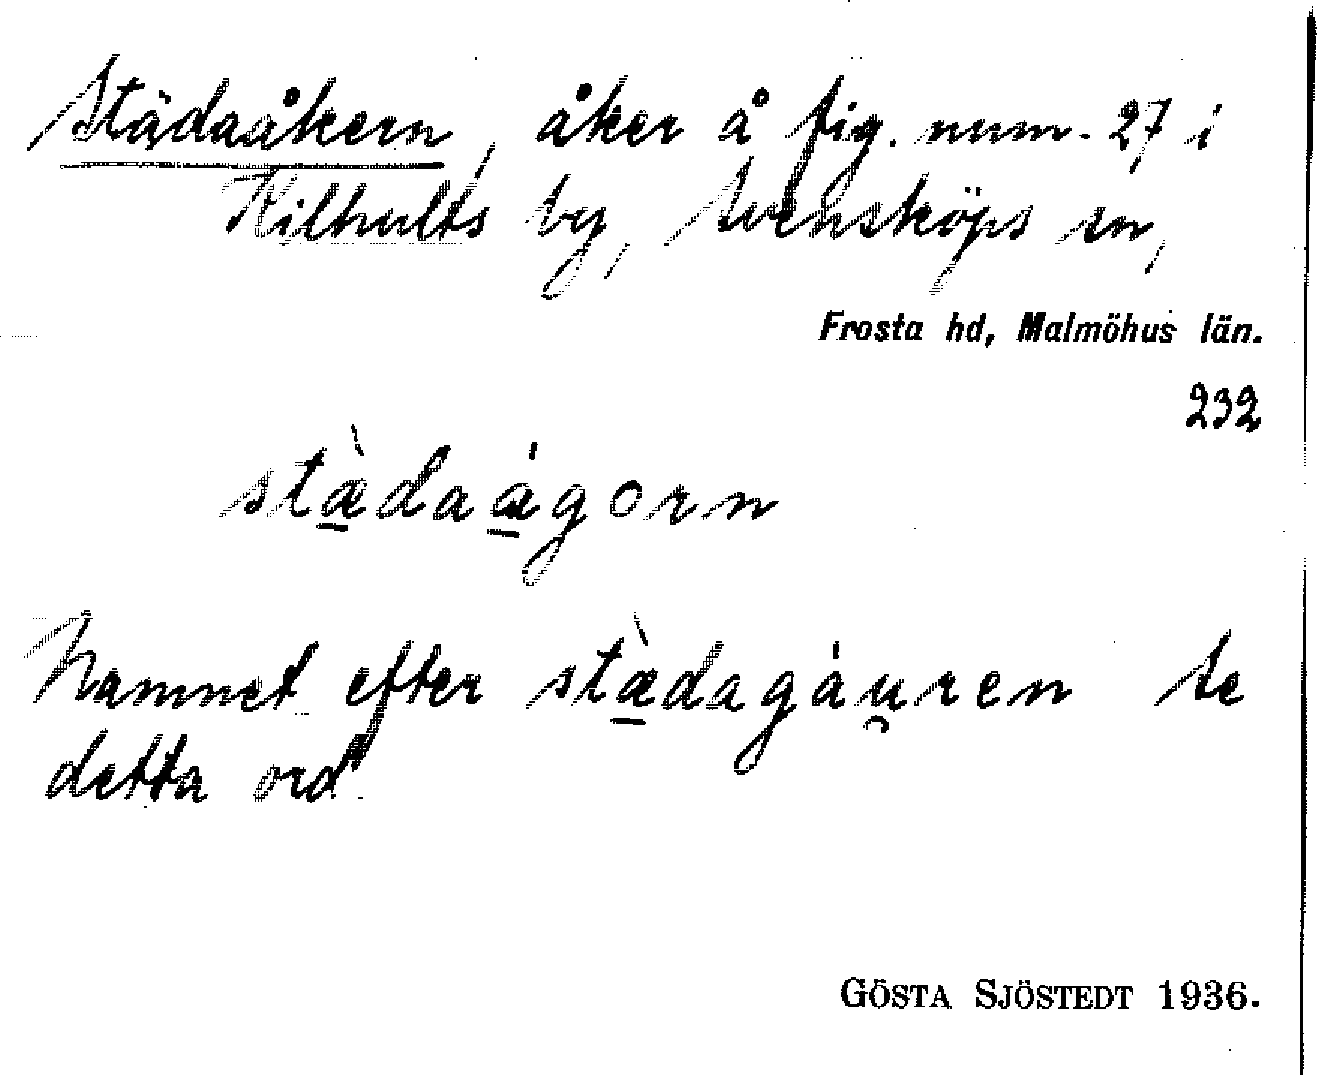 Städaåkern, åker å fig. num. 27 i
Kilhults by, Svensköps sn,
Frosta hd, Malmöhus län.
232
stæ̠̀daá̠gorn
Namnet efter stæ̠̀dagáu̯ren se
detta ord.
GÖSTA SJÖSTEDT 1936.